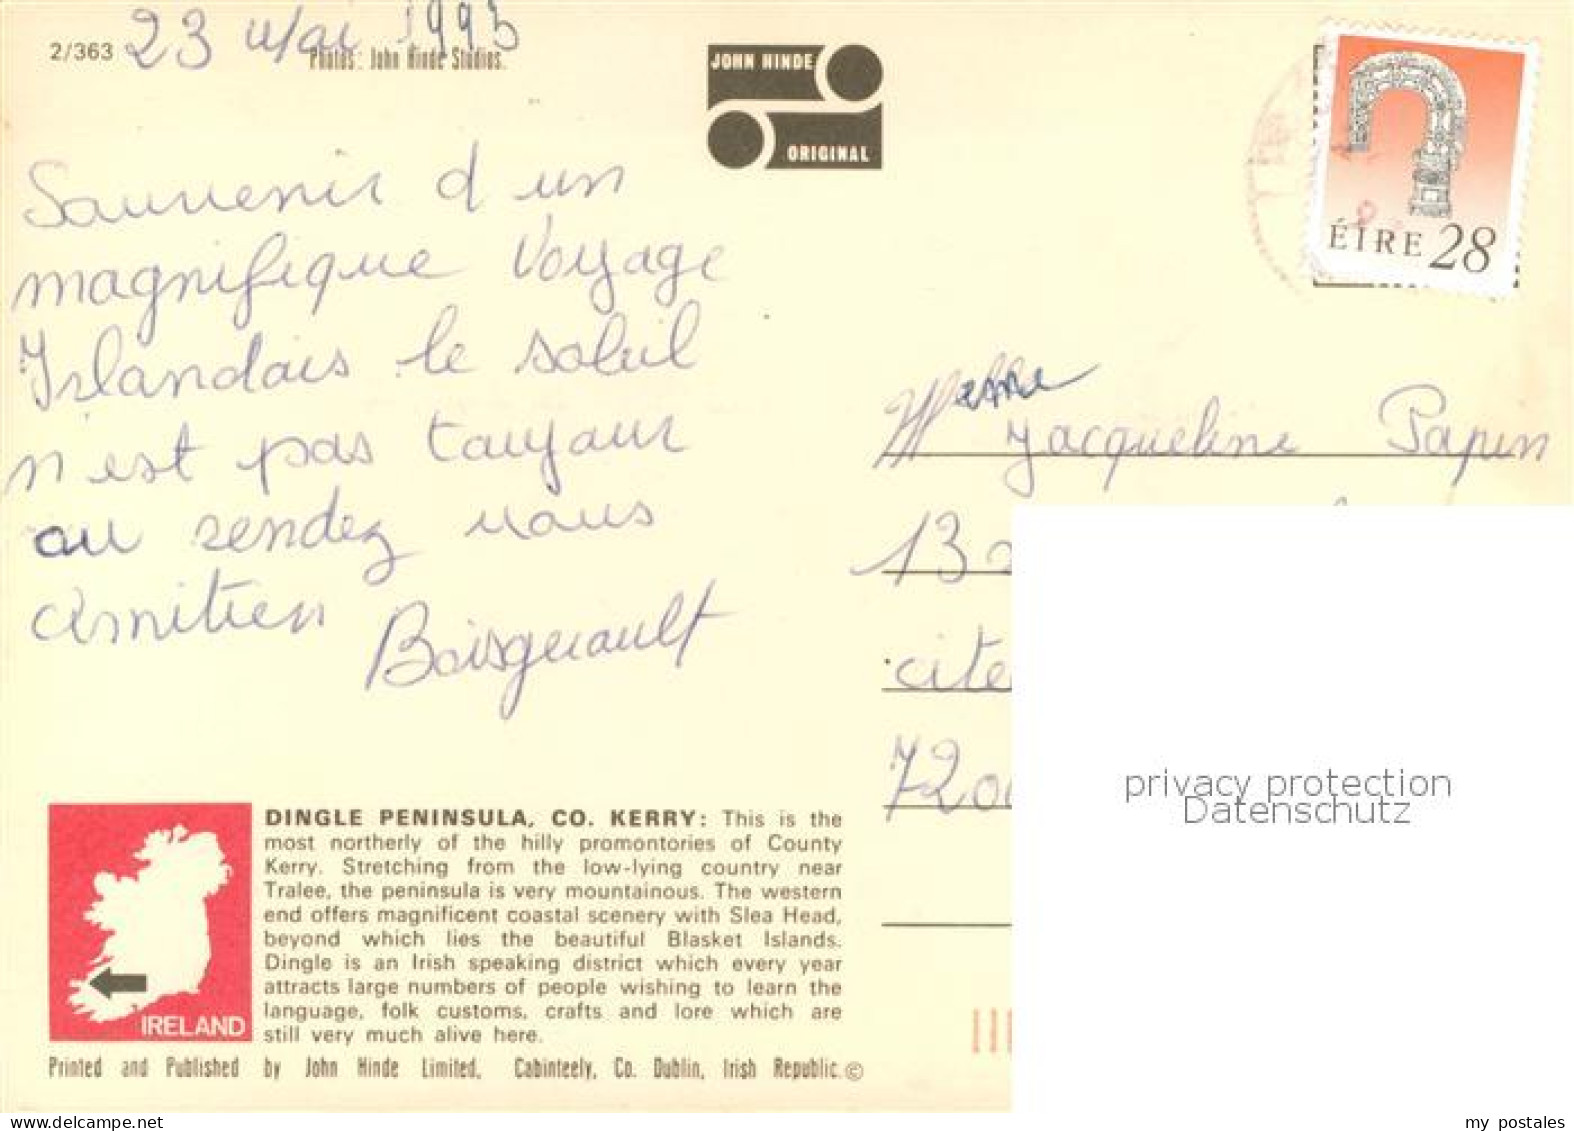 23 mai 1993
2/363
Photos: John Hinde Studios.
JOHN HINDE
ORIGINAL
ÉIRE 28
Souvenir d'un
magnifique Voyage
Irlandais le soleil
n'est pas toujour
au rendez vous
Amitien
Boisguault
Jacqueline Papin
13
cite
720
IRELAND
DINGLE PENINSULA, CO. KERRY: This is the
most northerly of the hilly promontories of County
Kerry. Stretching from the low-lying country near
Tralee, the peninsula is very mountainous. The western
end offers magnificent coastal scenery with Slea Head,
beyond which lies the beautiful Blasket Islands.
Dingle is an Irish speaking district which every year
attracts large numbers of people wishing to learn the
language, folk customs, crafts and lore which are
still very much alive here.
Printed and Published by John Hinde Limited, Cabinteely, Co. Dublin, Irish Republic. ©
privacy protection
Datenschutz
my postales